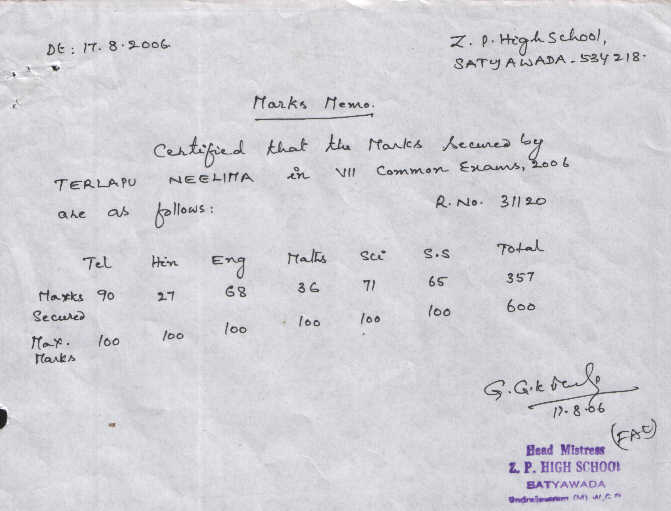 Dt: 17.8.2006
Z. P. High School,
SATYAWADA - 534218.
Marks Memo.
Certified that the Marks secured by
TERLAPU NEELIMA in VII Common Exams, 2006
are as follows: R. No. 31120
Tel Hin Eng Maths Sci S.S Total
Marks Secured 90 27 68 36 71 65 357
Max. Marks 100 100 100 100 100 100 600
17-8-06
(FAC)
Head Mistress
Z. P. HIGH SCHOOL
SATYAWADA